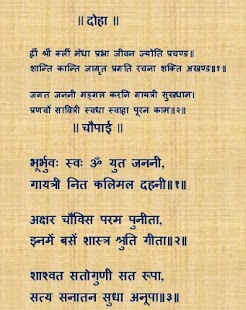 ॥ दोहा ॥
ह्रीं श्रीं क्लीं मेधा प्रभा जीवन ज्योति प्रचण्ड॥
शान्ति कान्ति जागृत प्रगति रचना शक्ति अखण्ड॥१॥
जगत जननी मङ्गल करनि गायत्री सुखधाम।
प्रणवों सावित्री स्वधा स्वाहा पूरन काम॥२॥
॥ चौपाई ॥
भूर्भुवः स्वः ॐ युत जननी,
गायत्री नित कलिमल दहनी॥१॥
अक्षर चौविस परम पुनीता,
इनमें बसें शास्त्र श्रुति गीता॥२॥
शाश्वत सतोगुणी सत रूपा,
सत्य सनातन सुधा अनूपा॥३॥